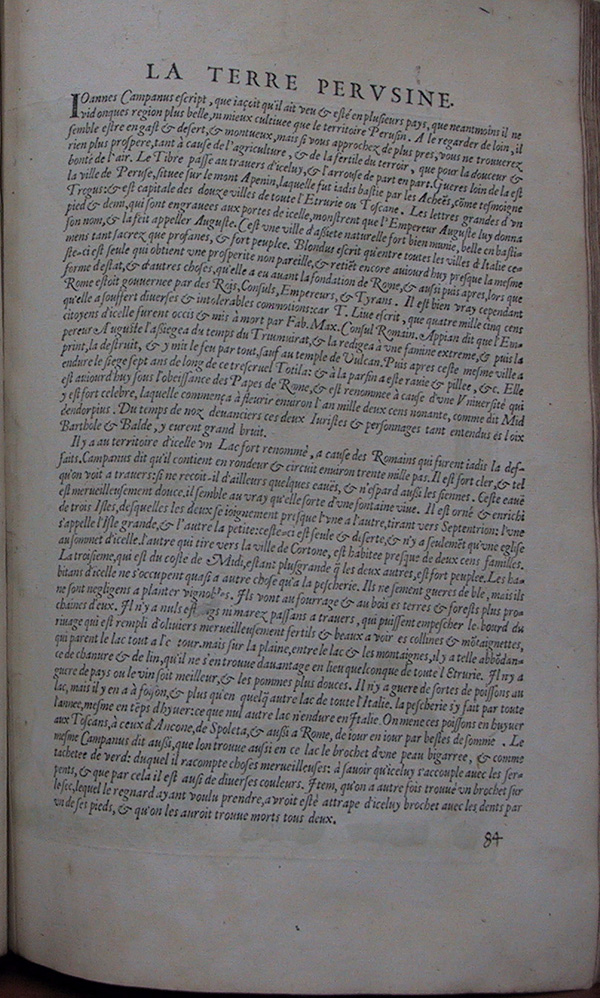 LA TERRE PERVSINE.
IOannes Campanus escript, que iaçoit qu'il ait veu & esté en plusieurs pays, que neantmoins il ne
vid onques region plus belle, ni mieux cultiuee que le territoire Perusin. A le regarder de loin, il
semble estre en gast & desert, & montueux, mais si vous approchez de plus pres, vous ne trouuerez
rien plus prospere, tant à cause de l'agriculture, & de la fertile du terroir, que pour la douceur &
bonté de l'air. Le Tibre passe au trauers d'iceluy, & l'arrouse de part en part. Gueres loin de la est
la ville de Peruse, situee sur le mont Apenin, laquelle fut iadis bastie par les Acheēs, cōme tesmoigne
Trogus: & est capitale des douze villes de toute l'Etrurie ou Toscane. Les lettres grandes d'vn
pied & demi, qui sont engrauees aux portes de icelle, monstrent que l'Empereur Auguste luy donna
son nom, & la feit appeller Auguste. C'est vne ville d'assiete naturelle fort bien munie, belle en bastis-
mens tant sacrez que profanes, & fort peuplee. Blondus escrit qu'entre toutes les villes d'Italie ce-
ste-ci est seule qui obtient vne prosperite non pareille, & retiēt encore auiourd huy presque la mesme
forme d'estat, & d'autres choses, qu'elle a eu auant la fondation de Rome, & aussi puis apres, lors que
Rome estoit gouuernee par des Rois, Consuls, Empereurs, & Tyrans. Il est bien vray cependant
qu'elle a souffert diuerses & intolerables commotions: car T. Liue escrit, que quatre mille cinq cens
citoyens d'icelle furent occis & mis à mort par Fab. Max. Consul Romain. Appian dit que l'Em-
pereur Auguste l'assiegea du temps du Triumuirat, & la redigea à vne famine extreme, & puis la
print, la destruit, & y mit le feu par tout, sauf au temple de Vulcan. Puis apres ceste mesme ville a
endure le siege sept ans de long de ce trescruel Totila: & à la parfin a este rauie & pillee, &c. Elle
est auiourd'huy sous l'obeissance des Papes de Rome, & est renommee à cause d'vne Vniuersité qui
y est fort celebre, laquelle commença à fleurir enuiron l'an mille deux cens nonante, comme dit Mid
dendorpius. Du temps de noz deuanciers ces deux Iuristes & personnages tant entendus és loix
Barthole & Balde, y eurent grand bruit.
Il y a au territoire d'icelle vn Lac fort renommé, a cause des Romains qui furent iadis la def-
faits. Campanus dit qu'il contient en rondeur & circuit enuiron trente mille pas. Il est fort cler, & tel
qu'on voit a trauers: si ne recoit-il d'ailleurs quelques eaues, & n'espard aussi les siennes. Ceste eaue
est merueilleusement douce, il semble au vray qu'elle sorte d'vne fontaine viue. Il est orné & enrichi
de trois Isles, desquelles les deux se ioignement presque l'vne a l'autre, tirant vers Septentrion: l'vne
s'appelle l'Isle grande, & l'autre la petite: ceste-ci est seule & deserte, & n'y a seulemēt qu'vne eglise
au sommet d'icelle. l'autre qui tire vers la ville de Cortone, est habitee presque de deux cens familles.
La troisieme, qui est du coste de Midi, estant plus grande q̃ les deux autres, est fort peuplee. Les ha-
bitans d'icelle ne s'occupent quasi a autre chose qu'a la pescherie. Ils ne sement gueres de ble, mais ils
ne sont negligens a planter vignobles. Ils vont au fourrage & au bois es terres & forests plus pro-
chaines d'eux. Il n'y a nuls estangs ni marez passans a trauers, qui puissent empescher le bourd du
riuage qui est rempli d'oliuiers merueilleusement fertils & beaux a voir es collines & mōtaignettes,
qui parent le lac tout a l'e tour. mais sur la plaine, entre le lac & les montaignes, il y a telle abbōdan-
ce de chanure & de lin, qu'il ne s'en trouue dauantage en lieu quelconque de toute l'Etrurie. Il n'y a
guere de pays ou le vin soit meilleur, & les pommes plus douces. Il n'y a guere de sortes de poissons au
lac, mais il y en a à foyson, & plus qu'en quelq̃ autre lac de toute l'Italie. la pescherie s'y fait par toute
l'annee, mesme en tēps d'hyuer: ce que nul autre lac n'endure en Italie. On mene ces poissons en huyuer
aux Toscans, à ceux d'Ancone, de Spoleta, & aussi a Rome, de iour en iour par bestes de somme. Le
mesme Campanus dit aussi, que lon trouue aussi en ce lac le brochet d'vne peau bigarree, & comme
tachetee de verd: duquel il racompte choses merueilleuses: à sauoir qu'iceluy s'accouple auec les ser-
pents, & que par cela il est aussi de diuerses couleurs. Item, qu'on a autre fois trouué vn brochet sur
le sec, lequel le regnard ayant voulu prendre, avroit esté attrape d'iceluy brochet auec les dents par
vn de ses pieds, & qu'on les auroit trouue morts tous deux.
84